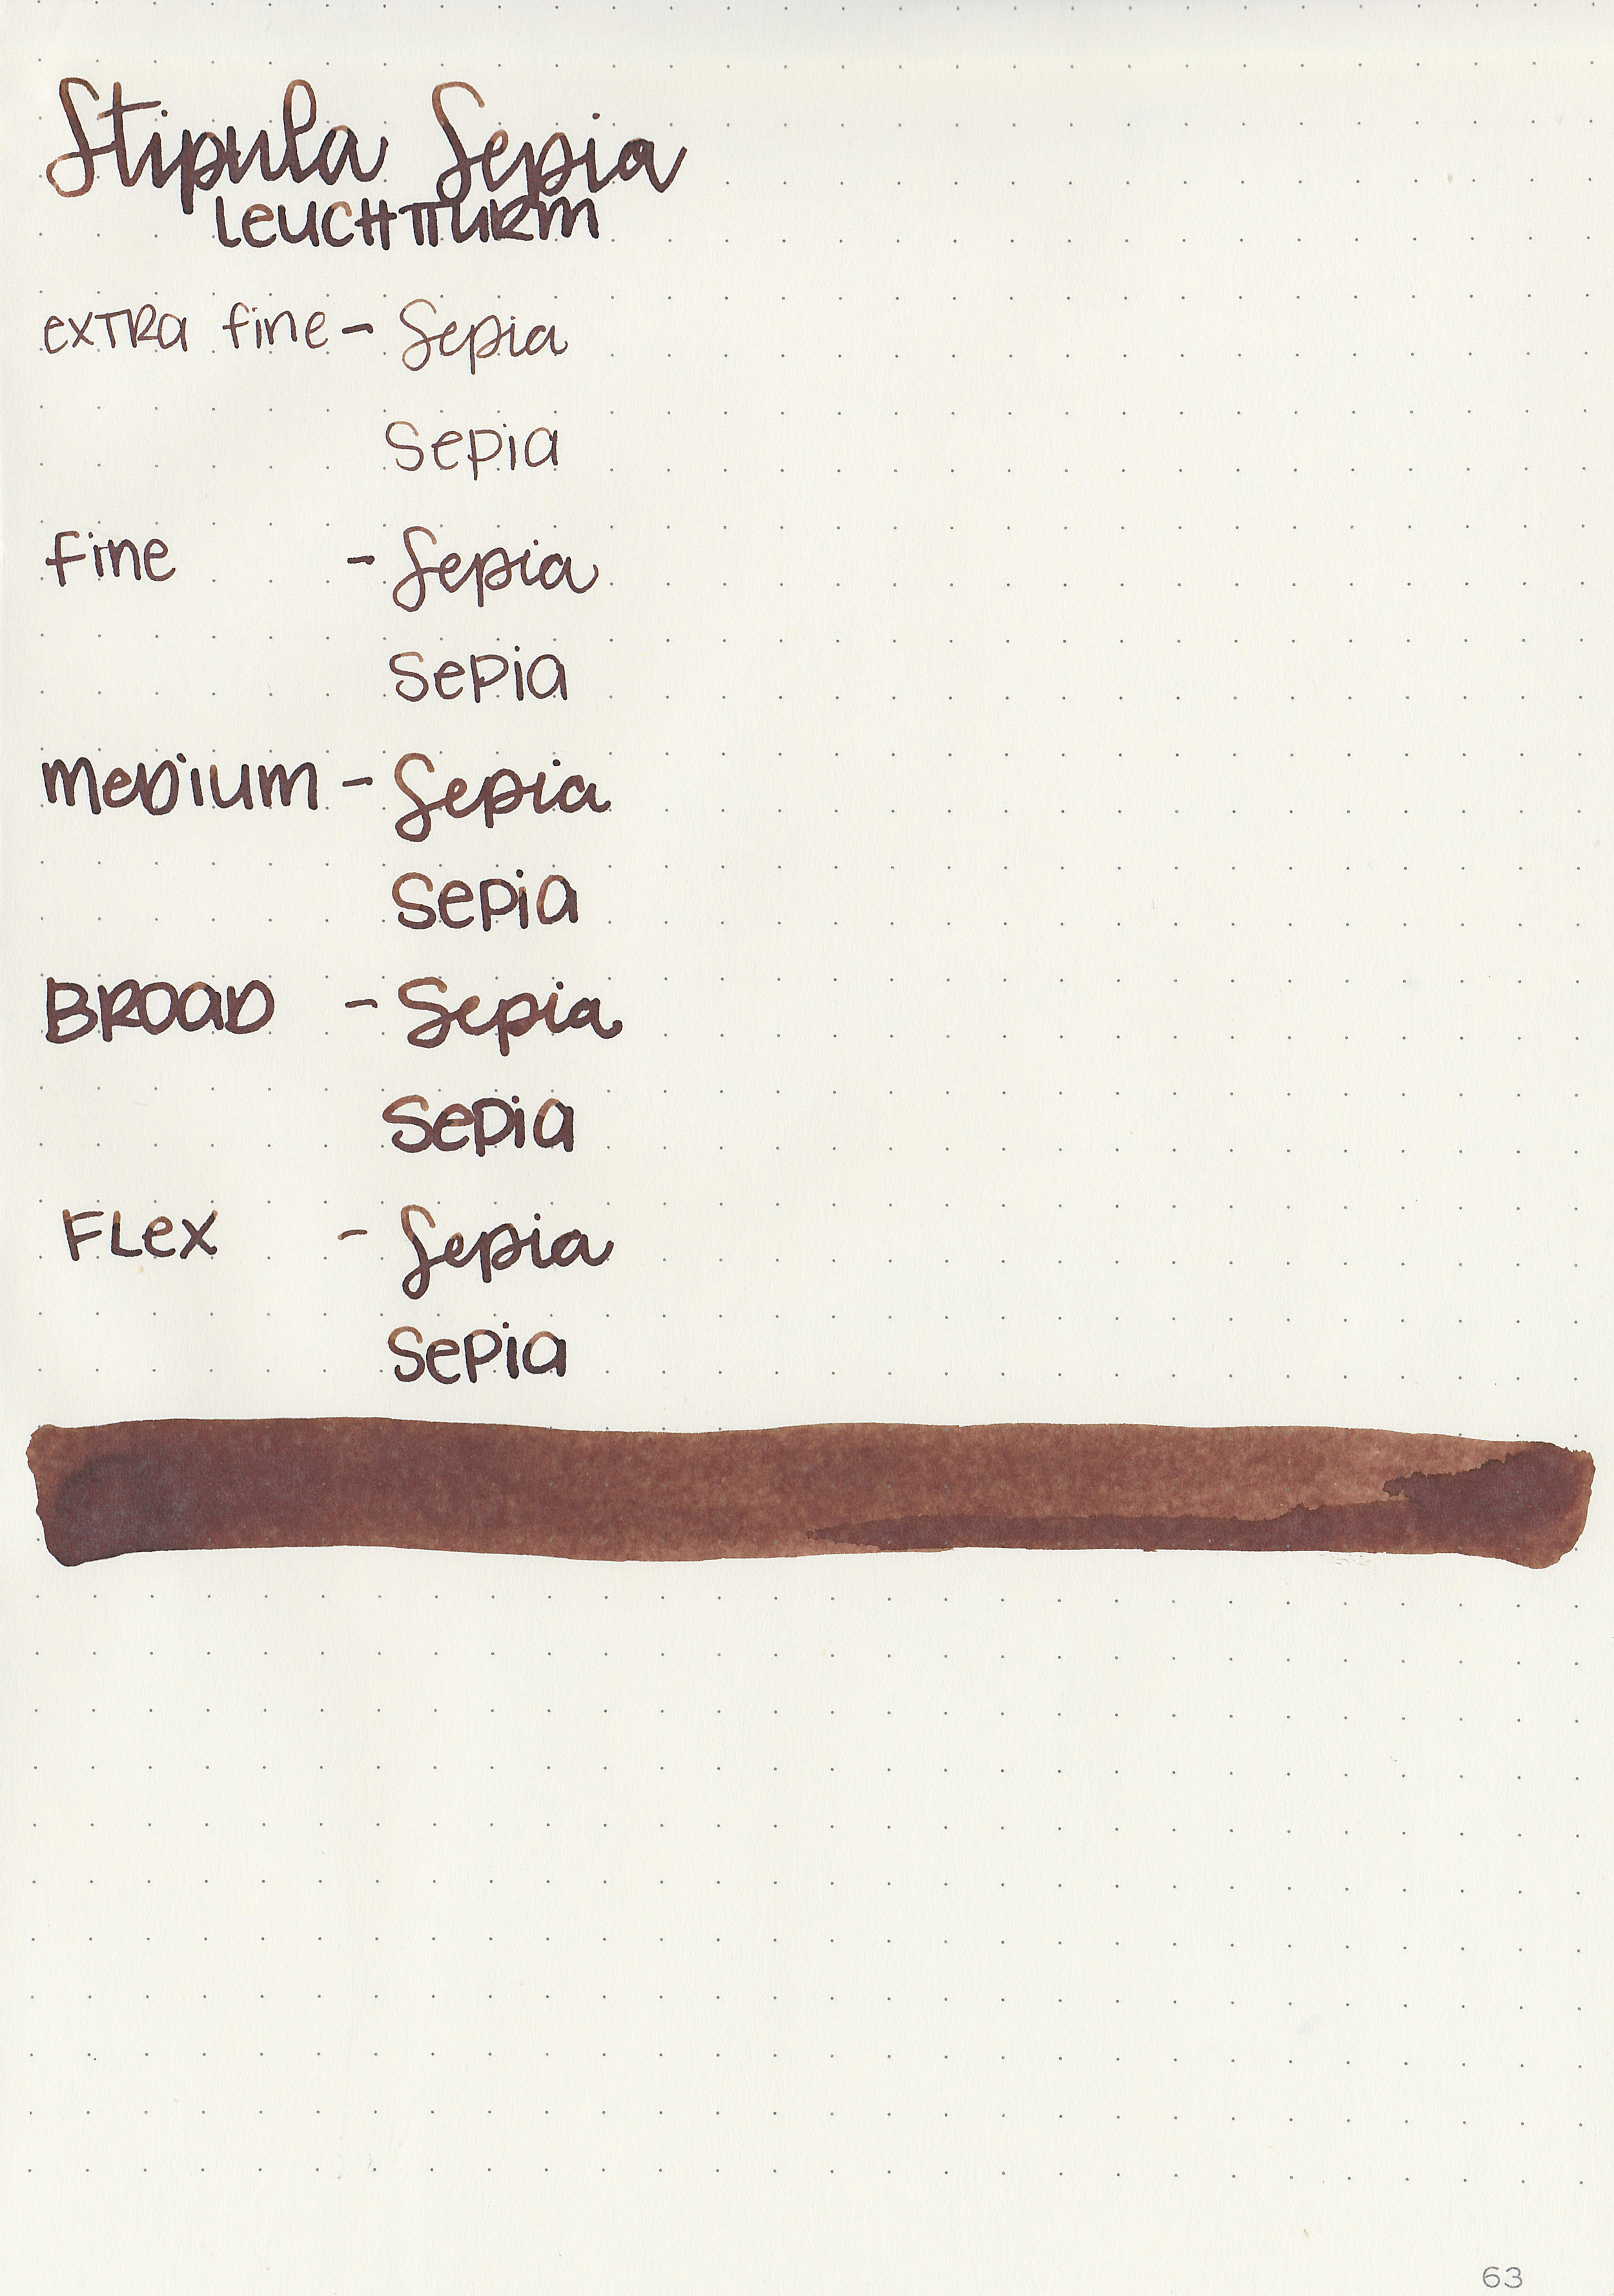 Stipula Sepia
LEUCHTTURM
exTRa fine - Sepia
Sepia
fine - Sepia
Sepia
meDium - Sepia
Sepia
BROaD - Sepia
Sepia
FLex - Sepia
Sepia
63